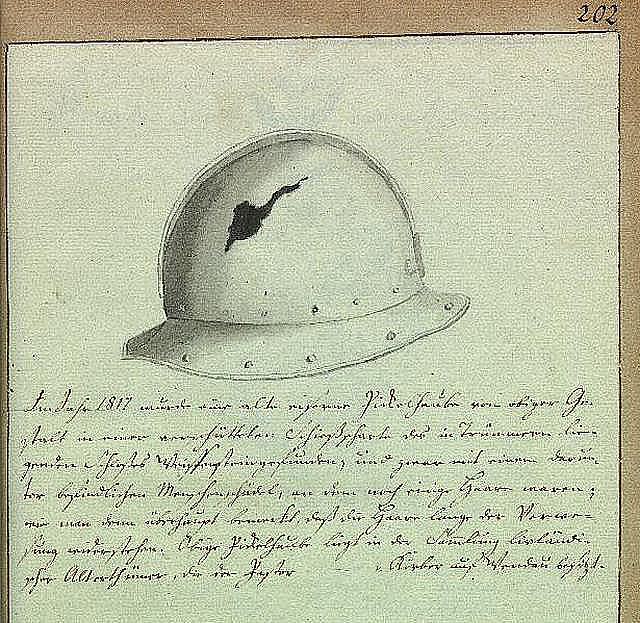 202
Im Jahr 1817 wurde eine alte eiserne Pickelhaube von obiger Ge-
stalt in einer verschütteten Schießscharte des in Trümmern lie-
genden Schlosses gefunden, und zwar mit einem darun-
ter befindlichen Menschenschädel, an dem noch einige Haare waren;
wie man denn überhaupt bemerkt, daß die Haare lange der Verwe-
sung widerstehen. Obige Pickelhaube liegt in der Sammlung livländi-
scher Alterthümer, die der Pastor Körber aus Wendau besitzt.